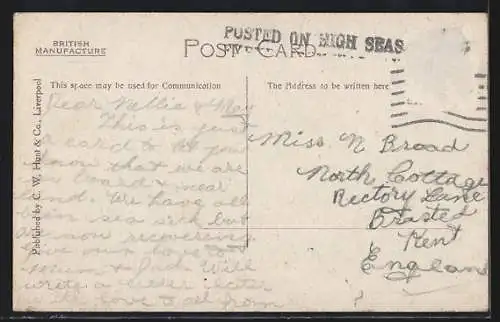 BRITISH
MANUFACTURE
POST CARD
POSTED ON HIGH SEAS
This space may be used for Communication
The Address to be written here
Published by C. W. Hunt & Co., Liverpool
Dear Nellie & May
This is just
a card to let you
know that we are
on board & near
land. We have all
been sea sick but
are now recovering.
Give our love to
Mum & Will
write a letter later
love to all from
Miss N Broad
North Cottage
Rectory Lane
Brasted
Kent
England